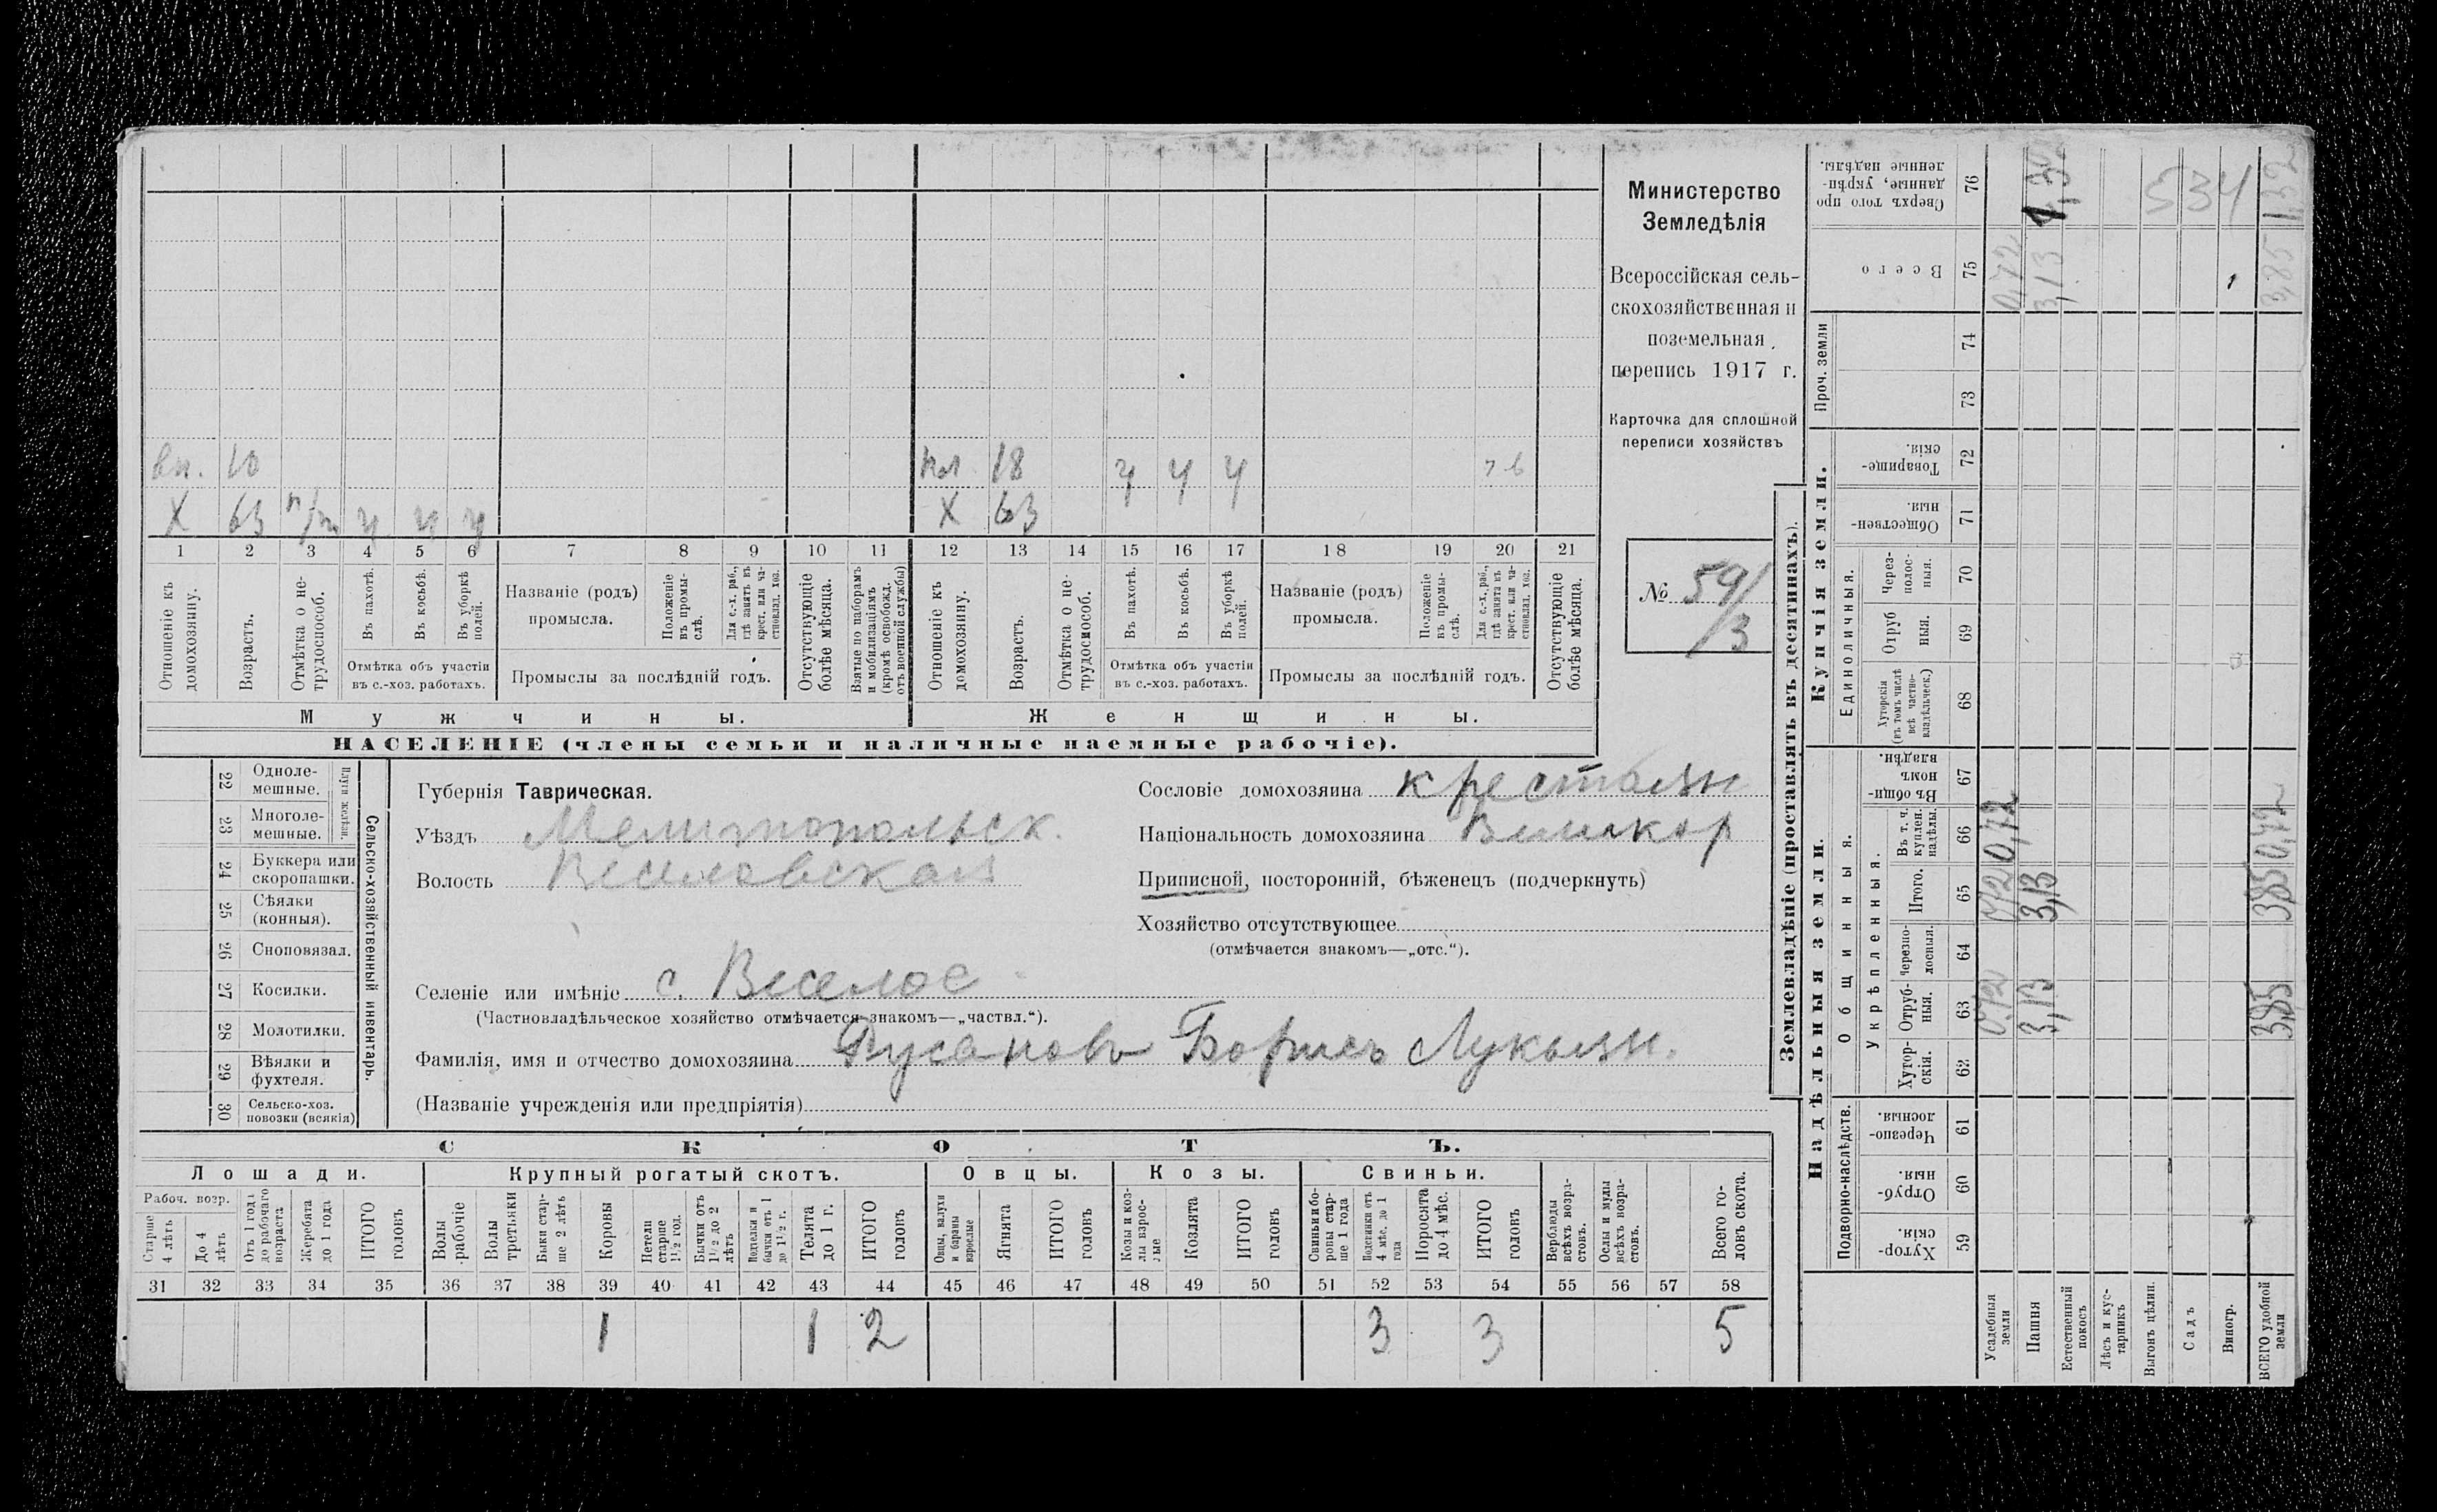 Министерство
Земледѣлія
Всероссійская сель-
скохозяйственная и
поземельная
перепись 1917 г.
Карточка для сплошной
переписи хозяйствъ
№ 591
/3
вн. 10
пл 18 ч ч ч
Х 63 п/т ч ч ч
Х 63
1 2 3 4 5 6 7 8 9 10 11 12 13 14 15 16 17 18 19 20 21
Отношеніе къ домохозяину.
Возрастъ.
Отмѣтка о не-трудоспособ.
Въ пахотѣ.
Въ косьбѣ.
Въ уборкѣ полей.
Отмѣтка объ участіи
въ с.-хоз. работахъ.
Названіе (родъ)
промысла.
Положеніе въ промы-слѣ.
Для с.-х. раб., гдѣ занятъ въ крест. или ча-стновлад. хоз.
Промыслы за послѣдній годъ.
Отсутствующіе болѣе мѣсяца.
Взятые по наборамъ и мобилизаціямъ (кромѣ освобожд. отъ военной службы)
Отношеніе къ домохозяину.
Возрастъ.
Отмѣтка о не-трудоспособ.
Въ пахотѣ.
Въ косьбѣ.
Въ уборкѣ полей.
Отмѣтка объ участіи
въ с.-хоз. работахъ.
Названіе (родъ)
промысла.
Положеніе въ промы-слѣ.
Для с.-х. раб., гдѣ занята въ крест. или ча-стновлад. хоз.
Промыслы за послѣдній годъ.
Отсутствующіе болѣе мѣсяца.
Мужчины.
Женщины.
НАСЕЛЕНІЕ (члены семьи и наличные наемные рабочіе).
22 Одноле-мешные.
23 Многоле-мешные.
24 Буккера или скоропашки.
25 Сѣялки (конныя).
26 Сноповязал.
27 Косилки.
28 Молотилки.
29 Вѣялки и фухтеля.
30 Сельско-хоз. повозки (всякія)
Сельско-хозяйственный инвентарь.
Губернія Таврическая.
Уѣздъ Мелитопольск.
Волость Веселовская
Сословіе домохозяина крестьян
Національность домохозяина Великор
Приписной, посторонній, бѣженецъ (подчеркнуть)
Хозяйство отсутствующее
(отмѣчается знакомъ—„отс.“).
Селеніе или имѣніе с. Веселое
(Частновладѣльческое хозяйство отмѣчается знакомъ—„частвл.“).
Фамилія, имя и отчество домохозяина Русановъ Борисъ Лукьян.
(Названіе учрежденія или предпріятія)
СКОТЪ.
Лошади. Крупный рогатый скотъ. Овцы. Козы. Свиньи.
Рабоч. возр.
Старше 4 лѣтъ
До 4 лѣтъ
Отъ 1 года до рабочаго возраста
Жеребята до 1 года
ИТОГО головъ
Волы рабочіе
Волы третьяки
Быки стар-ше 2 лѣтъ
Коровы
Нетели старше 1½ год.
Бычки отъ 1½ до 2 лѣтъ
Подтелки и бычки отъ 1 до 1½ г.
Телята до 1 г.
ИТОГО головъ
Овцы, валухи и бараны взрослые
Ягнята
ИТОГО головъ
Козы и коз-лы взрос-лые
Козлята
ИТОГО головъ
Свиньи и бо-ровы стар-ше 1 года
Подсвинки отъ 4 мѣс. до 1 года
Поросята до 4 мѣс.
ИТОГО головъ
Верблюды всѣхъ возра-стовъ.
Ослы и мулы всѣхъ возра-стовъ.
Всего го-ловъ скота.
31 32 33 34 35 36 37 38 39 40 41 42 43 44 45 46 47 48 49 50 51 52 53 54 55 56 57 58
1 1 2 3 3 5
Землевладѣніе (проставлять въ десятинахъ).
Надѣльныя земли.
Купчія земли.
Проч. земли
Подворно-наслѣдств.
Общинныя.
Укрѣпленныя.
Единоличныя.
Сверхъ того про данные, укрѣп-ленные надѣлы. 76
Всего 75
74
73
Товарище-скія. 72
Обществен-ныя 71
Через-полос-ныя. 70
Отруб ныя. 69
Хуторскія (въ томъ числѣ всѣ частно-владѣльческ.) 68
Въ общи-номъ владѣн. 67
Въ т. ч. куплен. надѣлы. 66
Итого. 65
Черезпо-лосныя. 64
Отруб-ныя. 63
Хутор-скія. 62
Черезпо-лосныя. 61
Отруб-ныя. 60
Хутор-скія 59
Усадебныя земли 0,72 0,72 0,72 0,72
Пашня 3,13 3,13 3,13 1,32
Естественный покосъ
Лѣсъ и кус-тарникъ
Выгонъ цѣлин.
Садъ
Виногр.
ВСЕГО удобной земли 3,85 3,85 0,72 3,85 1,32
534